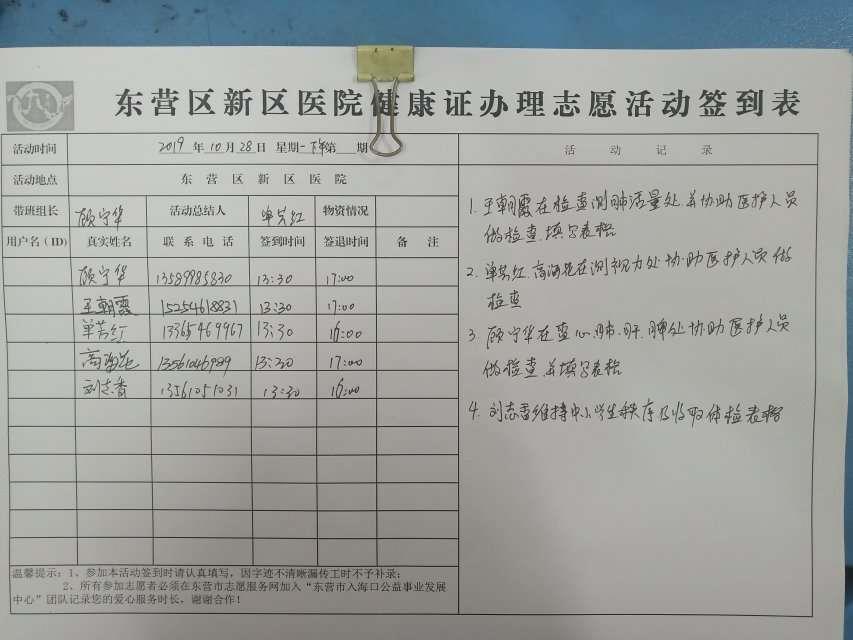 东营区新区医院健康证办理志愿活动签到表
活动时间 2019年10月28日 星期一 下午第 期 活动记录
活动地点 东营区新区医院
带班组长 顾守华 活动总结人 单芳红 物资情况
用户名(ID) 真实姓名 联系电话 签到时间 签退时间 备注
顾守华 13589985830 13:30 17:00
王朝霞 15254618831 13:30 17:00
单芳红 13365469967 13:30 16:00
高海花 13561046989 13:30 17:00
刘志香 13561051031 13:30 16:00
温馨提示:1、参加本活动签到时请认真填写,因字迹不清晰漏传工时不予补录;
2、所有参加志愿者必须在东营市志愿服务网加入“东营市入海口公益事业发展
中心”团队记录您的爱心服务时长,谢谢合作!
1. 王朝霞在检查测肺活量处,并协助医护人员
做检查,填写表格
2. 单芳红,高海花在测视力处协助医护人员做
检查
3. 顾守华在查心,肺,肝,脾处协助医护人员
做检查,并填写表格
4. 刘志香维持中小学生秩序及收取体检表格